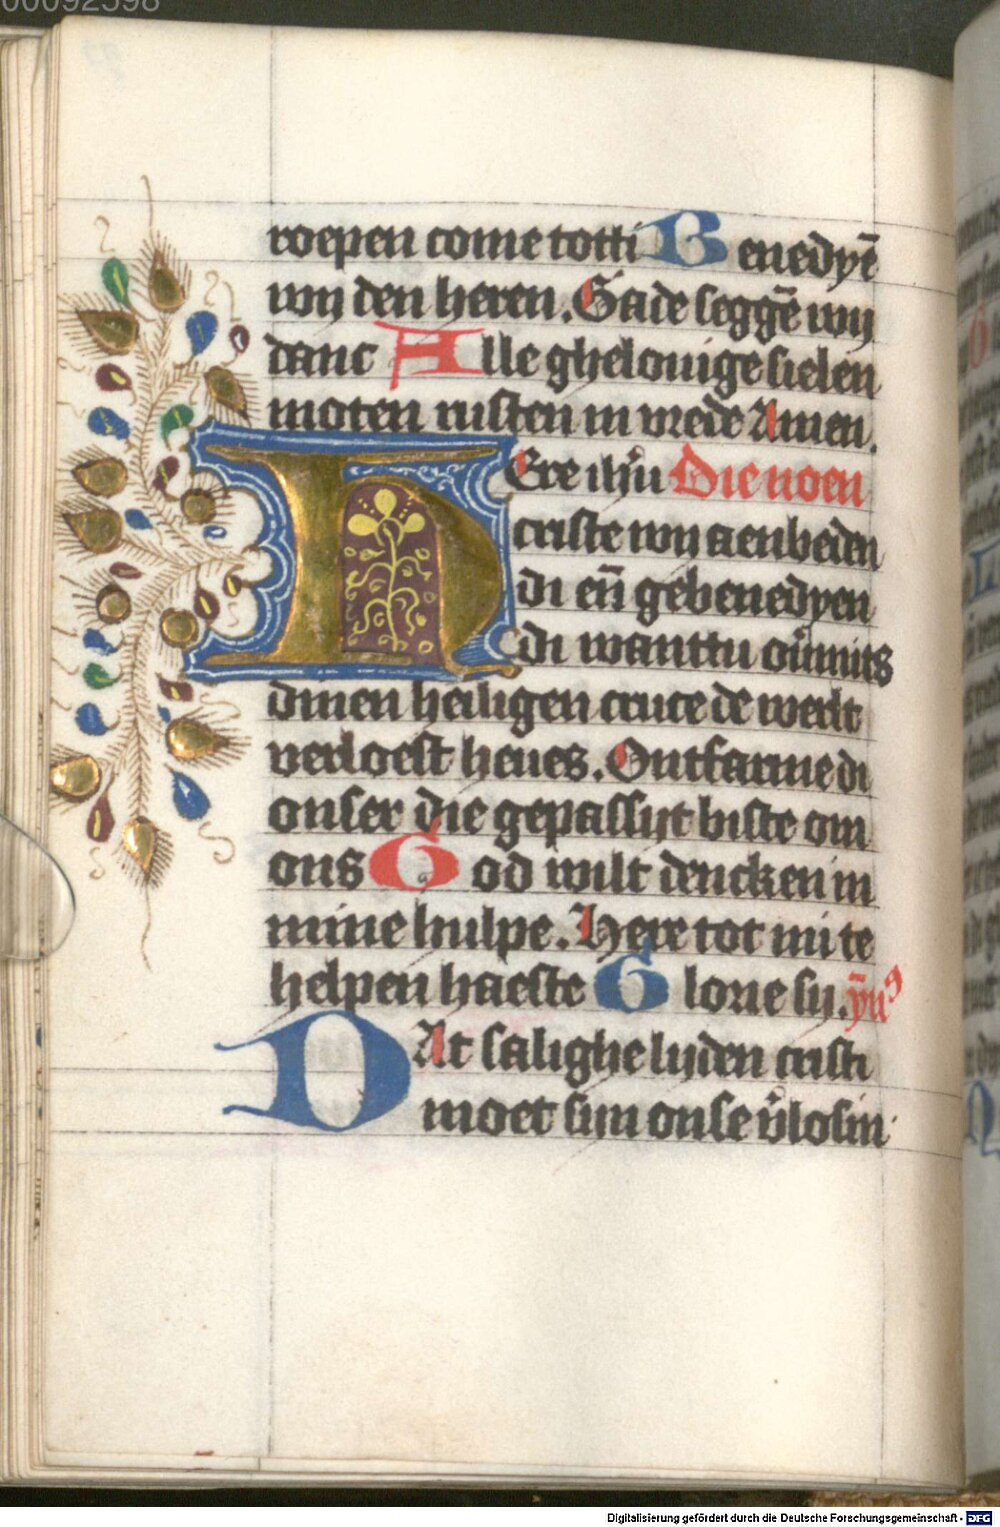 00092598
roepen come totti Benedyē
wij den heren. Gade seggē wij
danc Alle ghelouige sielen
moten rusten in vrede Amen.
HEre ihũ Die noen
criste wij aenbeden
di eñ gebenedyen
di wanttu ouͥmits
dinen heiligen cruce de werlt
verloest heues. Ontfarme di
onser die gepassijt biste om
ons God wilt dencken in
mine hulpe. Here tot mi te
helpen haeste Glorie sy. ym̄ꝰ
DAt salighe lijden cristi
moet sijn onse v̄losin
Digitalisierung gefördert durch die Deutsche Forschungsgemeinschaft - DFG